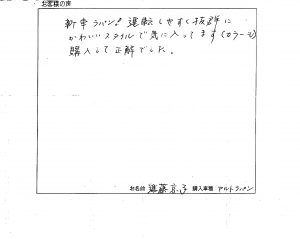 お客様の声
新車ラパン! 運転しやすく抜群に
かわいいスタイルで気に入ってます(カラーも)
購入して正解でした。
お名前 進藤京子 購入車種 アルトラパン